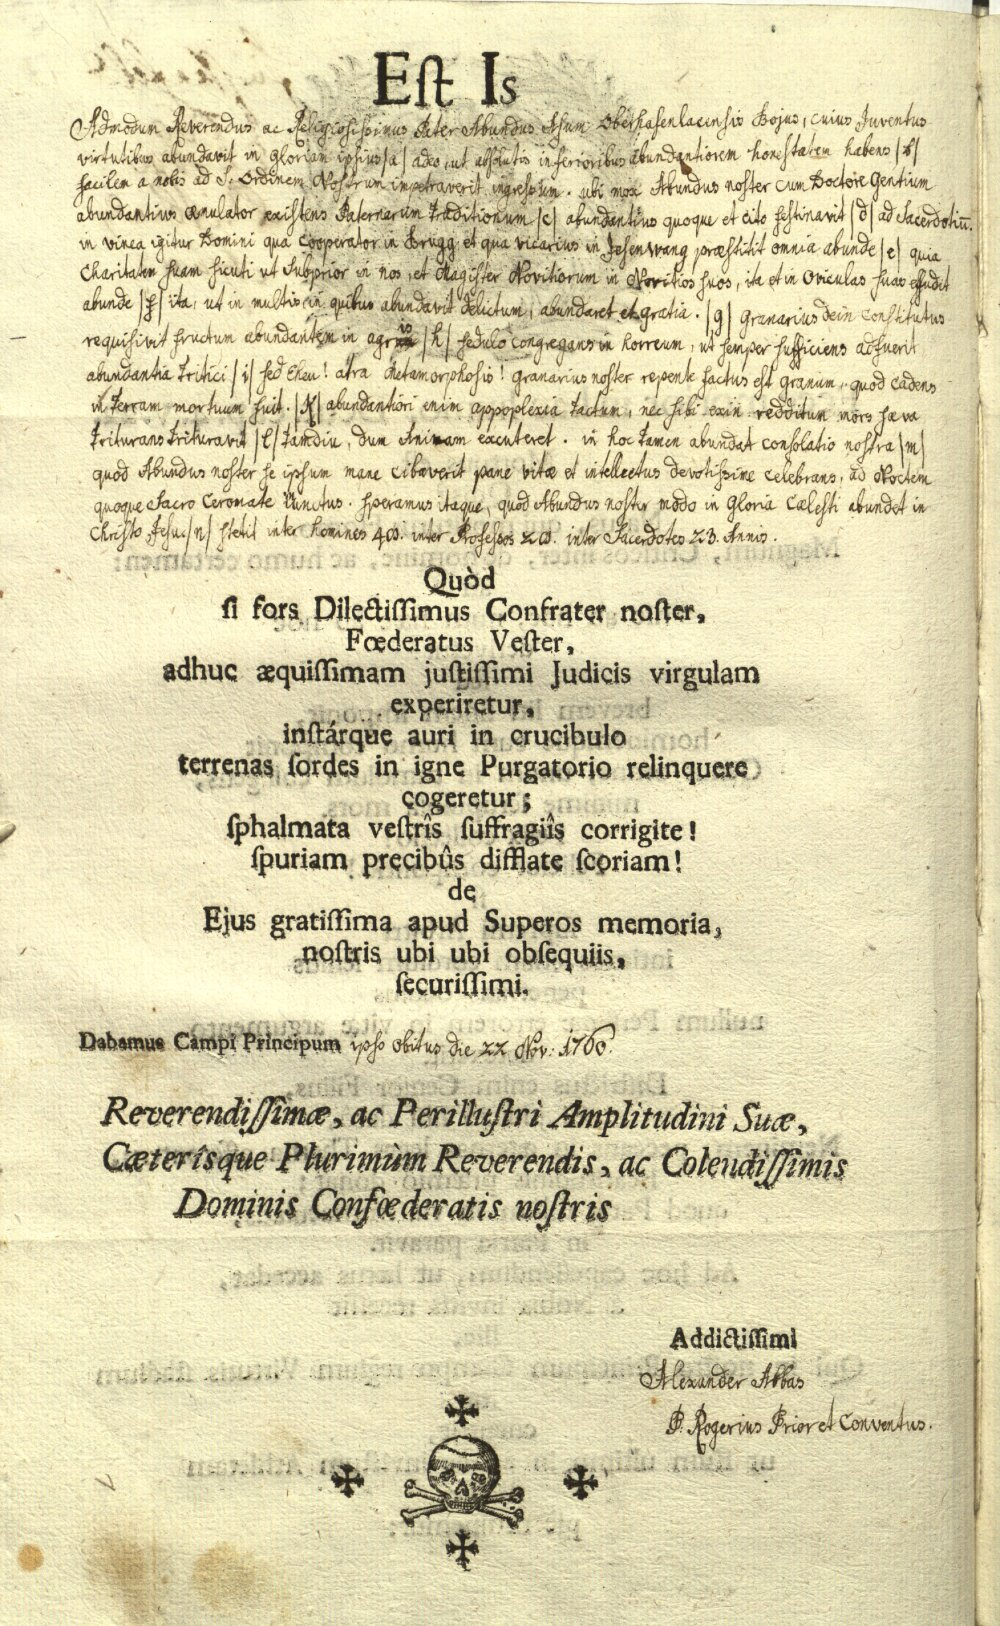 Eſt Is
Admodum Reverendus ac Religiosissimus Pater Abundus Thum Oberhasenlacensis Bojus, cuius Juventus
virtutibus abundavit in gloriam ipsius |a| adeo, ut absolutis inferioribus abundantiorem honestatem habens |b|
facilem a nobis ad S. Ordinem Nostrum impetraverit ingressum. ubi mox Abundus noster cum Doctore Gentium
abundantius æmulator existens Paternarum Traditionum |c| abundantius quoque et cito festinavit |d| ad Sacerdotiū.
in vinea igitur Domini qua Cooperator in Brugg et qua vicarius in Jesenwang præstitit omnia abunde |e| quia
Charitatem suam sicuti ut Subprior in nos, et Magister Novitiorum in Novitios suos, ita et in Oviculas suas effudit
abunde |f| ita, ut in multis in quibus abundavit delictum, abundaret et gratia. |g| Granarius dein Constitutus
requisivit fructum abundantem in agris |h| sedulo Congregans in horreum, ut semper sufficiens adfuerit
abundantia Tritici |i| sed Eheu! atra Metamorphosis! Granarius noster repente factus est granum, quod cadens
in Terram mortuum fuit. |k| abundantiori enim appoplexia Tactum, nec sibi exin redditum mors sæva
Triturans Trituravit |l| Tamdiu, dum Animam excuteret. in hoc Tamen abundat consolatio nostra |m|
quod Abundus noster se ipsum mane Cibaverit pane vitæ et intellectus devotissime Celebrans, ad Noctem
quoque Sacro Ceromate Unctus. speramus itaque, quod Abundus noster modo in Gloria Cælesti abundet in
Christo Jesu |n| stetit inter homines 4@. inter Professos 2@. inter Sacerdotes 23. Annis.
Quòd
ſi fors Dilectiſſimus Confrater noſter,
Fœderatus Veſter,
adhuc æquiſſimam juſtiſſimi Judicis virgulam
experiretur,
inſtárque auri in crucibulo
terrenas ſordes in igne Purgatorio relinquere
cogeretur;
ſphalmata veſtrîs ſuffragiîs corrigite!
ſpuriam precibûs difflate ſcoriam!
de
Ejus gratiſſima apud Superos memoria,
noſtris ubi ubi obſequiis,
ſecuriſſimi.
Dabamus Campi Principum ipso obitus die 22 Nov: 1760.
Reverendiſſimæ, ac Perilluſtri Amplitudini Suæ,
Cæterîsque Plurimùm Reverendis, ac Colendiſſimis
Dominis Confœderatis noſtris
Addictiſſimi
Alexander Abbas
P. Rogerius Prior et Conventus.